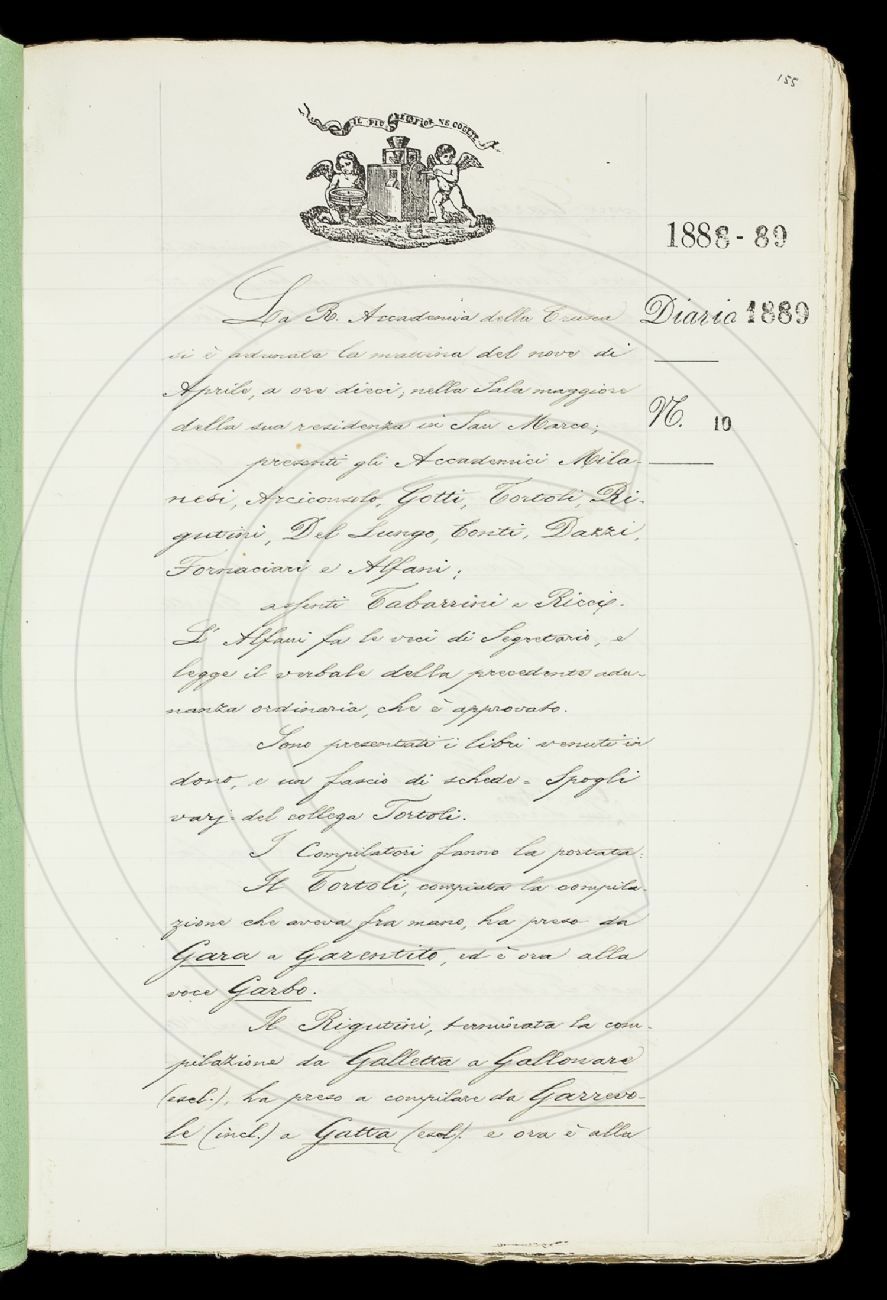 155
IL PIÙ BEL FIOR NE COGLIE
1888-89
Diario 1889
N. 10
La R. Accademia della Crusca
si è adunata la mattina del nove di
Aprile, a ore dieci, nella Sala maggiore
della sua residenza in San Marco;
presenti gli Accademici Mila-
nesi, Arciconsolo, Gotti, Tortoli, Ri-
gutini, Del Lungo, Conti, Dazzi,
Fornaciari e Alfani;
assenti Tabarrini e Ricci.
L'Alfani fa le veci di Segretario, e
legge il verbale della precedente adu-
nanza ordinaria, che è approvato.
Sono presentati i libri venuti in
dono, e un fascio di schede = Spogli
varj = del collega Tortoli.
I Compilatori fanno la portata:
Il Tortoli, compiuta la compila-
zione che aveva fra mano, ha preso da
Gara a Garentito, ed è ora alla
voce Garbo.
Il Rigutini, terminata la com-
pilazione da Galletta a Gallonare
(escl.), ha preso a compilare da Garrevo-
le (incl.) a Gatta (escl.) e ora è alla